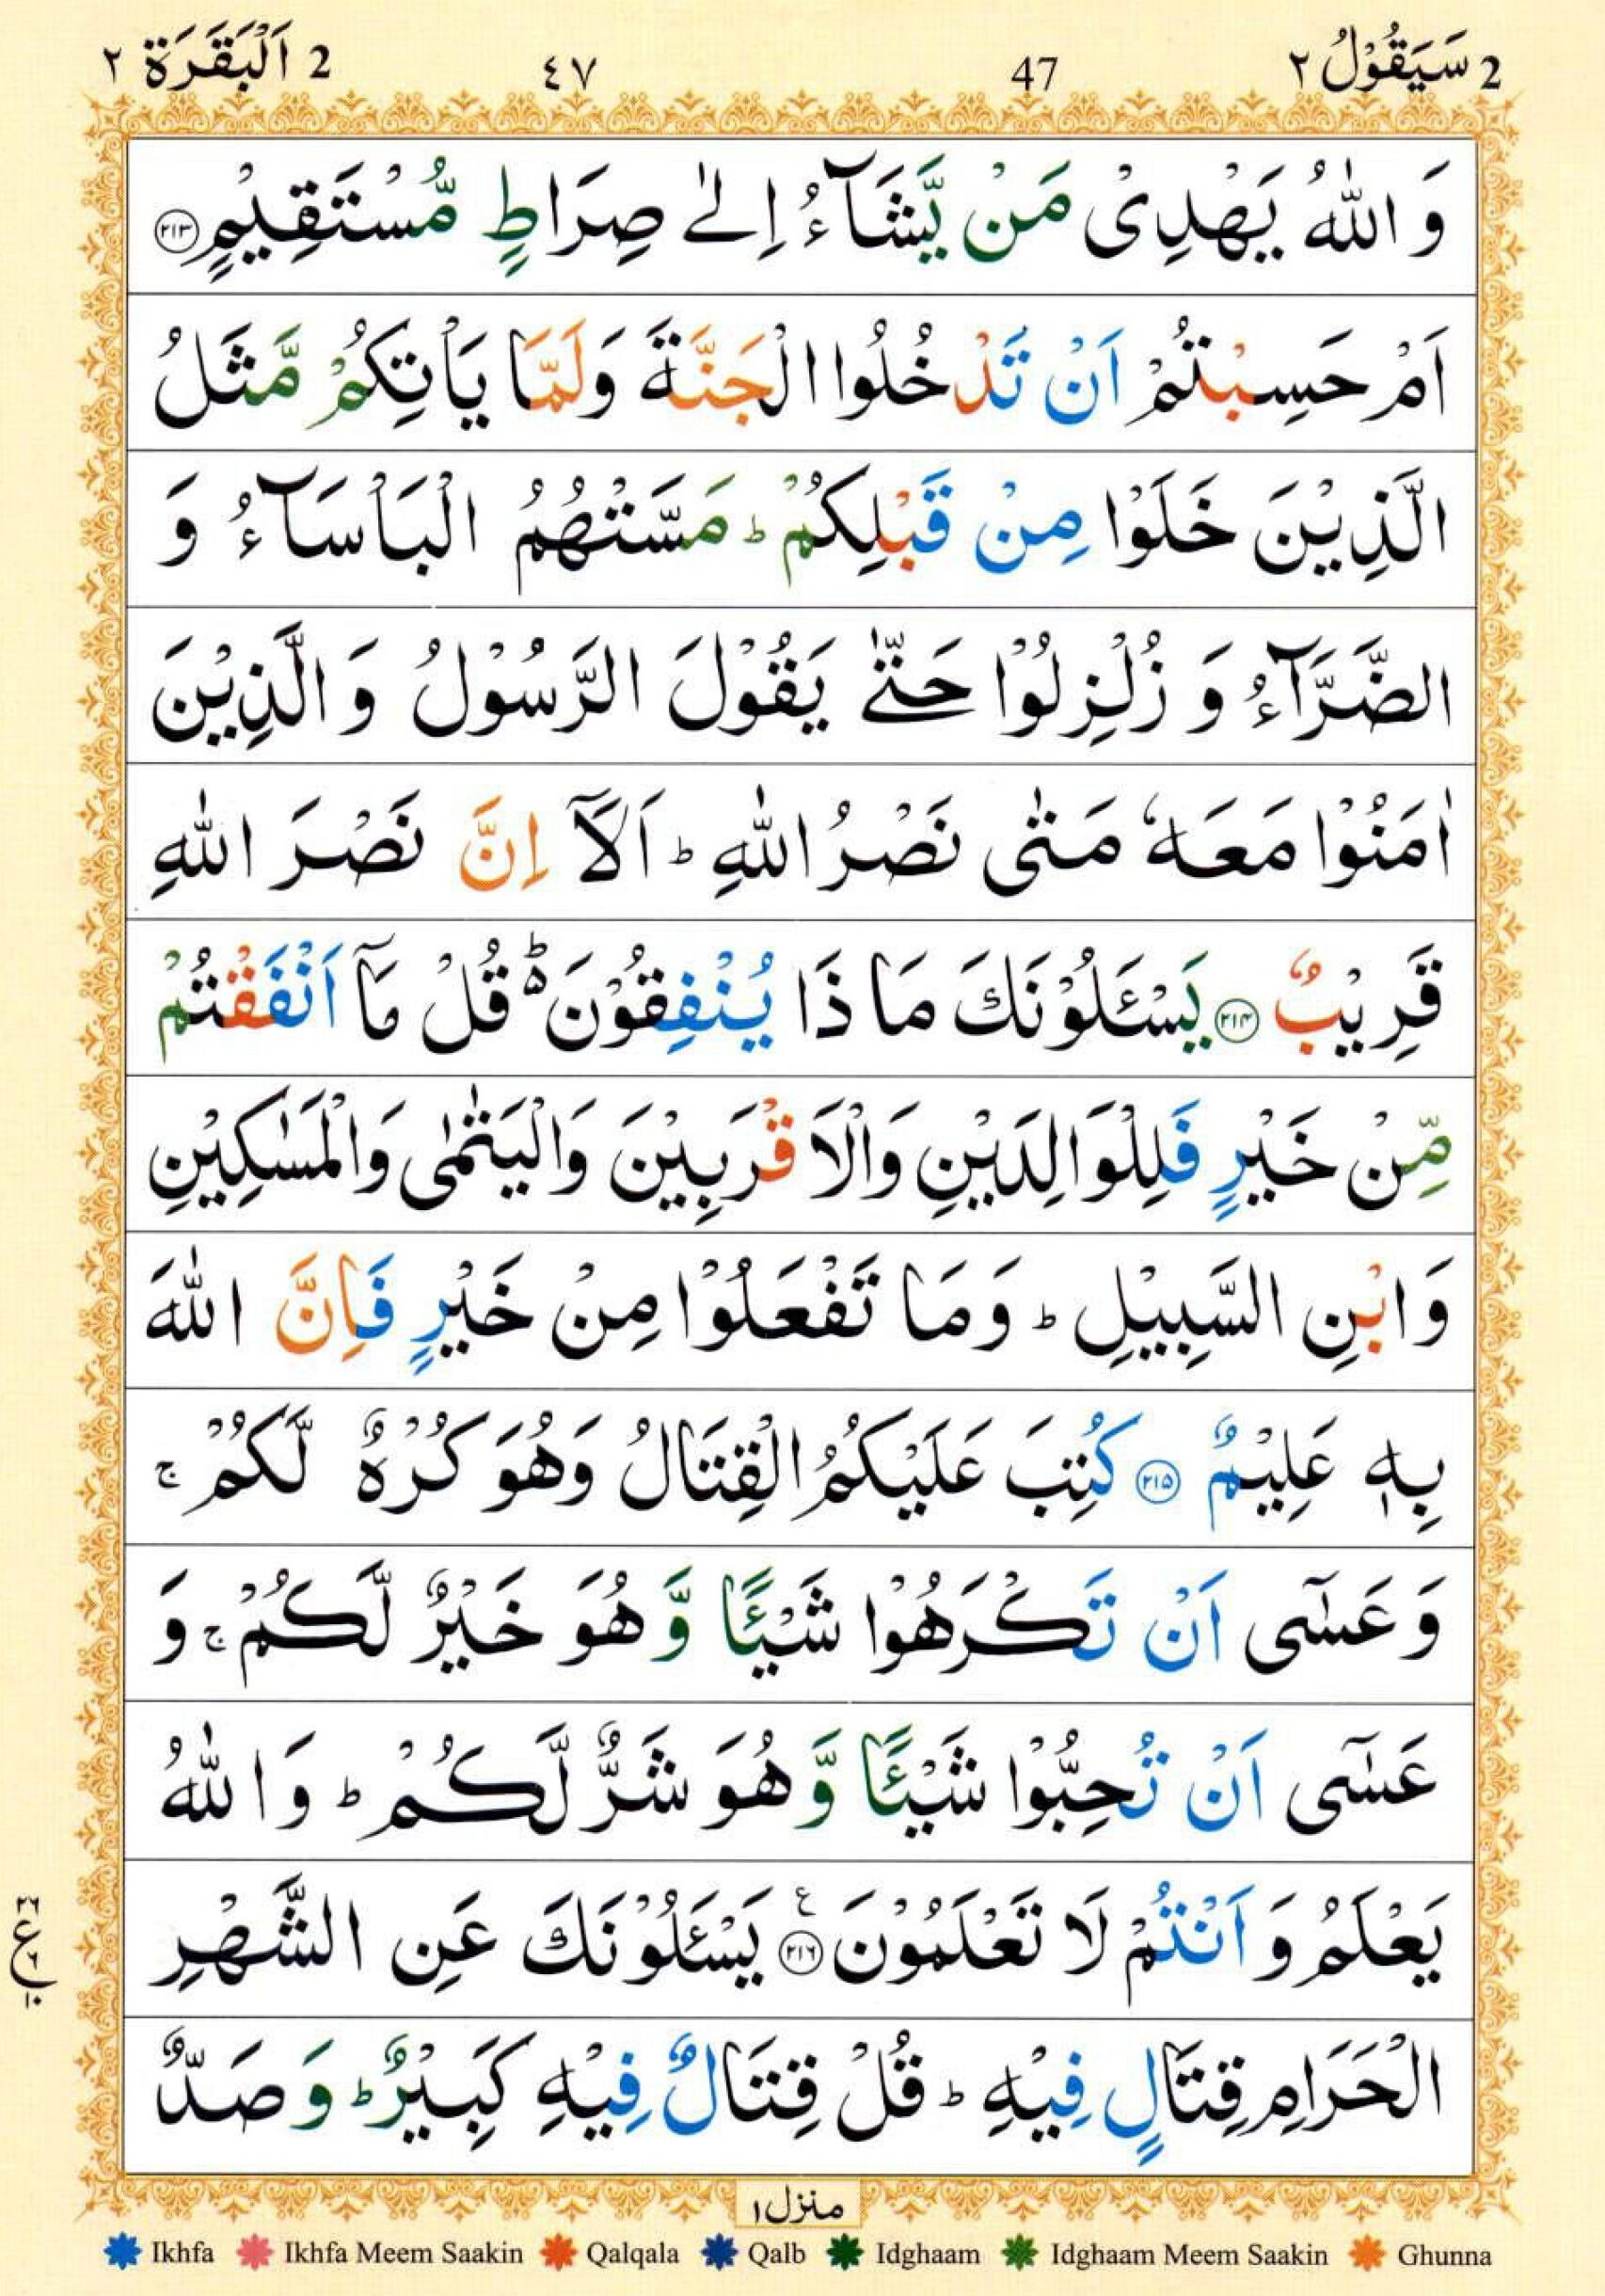 2 سَيَقُوْلُ ٢ 47 ٤٧ 2 اَلْبَقَرَة ٢
وَ اللّٰهُ يَهْدِىْ مَنْ يَّشَآءُ اِلٰى صِرَاطٍ مُّسْتَقِيْمٍ ﴿۲۱۳﴾
اَمْ حَسِبْتُمْ اَنْ تَدْخُلُوا الْجَنَّةَ وَلَمَّا يَاْتِكُمْ مَّثَلُ
الَّذِيْنَ خَلَوْا مِنْ قَبْلِكُمْ ؕ مَسَّتْهُمُ الْبَاْسَآءُ وَ
الضَّرَّآءُ وَ زُلْزِلُوْا حَتّٰى يَقُوْلَ الرَّسُوْلُ وَ الَّذِيْنَ
اٰمَنُوْا مَعَهٗ مَتٰى نَصْرُ اللّٰهِ ؕ اَلَآ اِنَّ نَصْرَ اللّٰهِ
قَرِيْبٌ ﴿۲۱۴﴾ يَسْـَٔلُوْنَكَ مَا ذَا يُنْفِقُوْنَ ؕ۬ قُلْ مَآ اَنْفَقْتُمْ
مِّنْ خَيْرٍ فَلِلْوَالِدَيْنِ وَالْاَقْرَبِيْنَ وَالْيَتٰمٰى وَالْمَسٰكِيْنِ
وَابْنِ السَّبِيْلِ ؕ وَمَا تَفْعَلُوْا مِنْ خَيْرٍ فَاِنَّ اللّٰهَ
بِهٖ عَلِيْمٌ ﴿۲۱۵﴾ كُتِبَ عَلَيْكُمُ الْقِتَالُ وَهُوَ كُرْهٌ لَّكُمْ ۚ
وَ عَسٰٓى اَنْ تَكْرَهُوْا شَيْـًٔا وَّ هُوَ خَيْرٌ لَّكُمْ ۚ وَ
عَسٰٓى اَنْ تُحِبُّوْا شَيْـًٔا وَّ هُوَ شَرٌّ لَّكُمْ ؕ وَ اللّٰهُ
يَعْلَمُ وَ اَنْتُمْ لَا تَعْلَمُوْنَ ﴿۲۱۶﴾ ع يَسْـَٔلُوْنَكَ عَنِ الشَّهْرِ
الْحَرَامِ قِتَالٍ فِيْهِ ؕ قُلْ قِتَالٌ فِيْهِ كَبِيْرٌ ؕ وَ صَدٌّ
۲۶ ع ۶ ۱۰
منزل ۱
Ikhfa Ikhfa Meem Saakin Qalqala Qalb Idghaam Idghaam Meem Saakin Ghunna